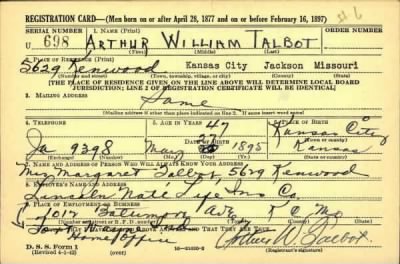 REGISTRATION CARD—(Men born on or after April 28, 1877 and on or before February 16, 1897)
SERIAL NUMBER 1. NAME (Print) ORDER NUMBER
U 698 ARTHUR WILLIAM TALBOT
(First) (Middle) (Last)
2. PLACE OF RESIDENCE (Print)
5629 Kenwood Kansas City Jackson Missouri
(Number and street) (Town, township, village, or city) (County) (State)
[THE PLACE OF RESIDENCE GIVEN ON THE LINE ABOVE WILL DETERMINE LOCAL BOARD
JURISDICTION; LINE 2 OF REGISTRATION CERTIFICATE WILL BE IDENTICAL]
3. MAILING ADDRESS
Same
[Mailing address if other than place indicated on line 2. If same insert word same]
4. TELEPHONE 5. AGE IN YEARS 6. PLACE OF BIRTH
47 Kansas City
DATE OF BIRTH
27
Ja 9398 May 1895 Kansas
(Exchange) (Number) (Mo.) (Day) (Yr.) (State or country)
7. NAME AND ADDRESS OF PERSON WHO WILL ALWAYS KNOW YOUR ADDRESS
Mrs Margaret Talbot, 5629 Kenwood
8. EMPLOYER'S NAME AND ADDRESS
Lincoln Nat'l Life Ins Co.
9. PLACE OF EMPLOYMENT OR BUSINESS
1012 Baltimore Ave K.C. Mo
Fort Wayne Ind
Home Office
Arthur W. Talbot
D. S. S. Form 1
(Revised 4-1-42)